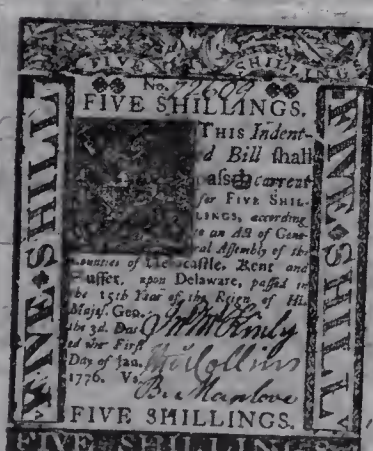 FIVE SHILLING
No. 72609
FIVE SHILLINGS.
THIS Indent-
d Bill shall
pass current
for FIVE SHIL-
LINGS, according
to an Act of Gene-
ral Assembly of the
Counties of Newcastle, Kent and
Sussex, upon Delaware, passed in
the 15th Year of the Reign of His
Majesty Geo.
the 3d. Dat-
ed the First
Day of Jan.
1776.
Jno McKinly
Wm Collins
B. Manlove
FIVE SHILLINGS.
FIVE SHILLINGS
FIVE SHILL
FIVE SHILL